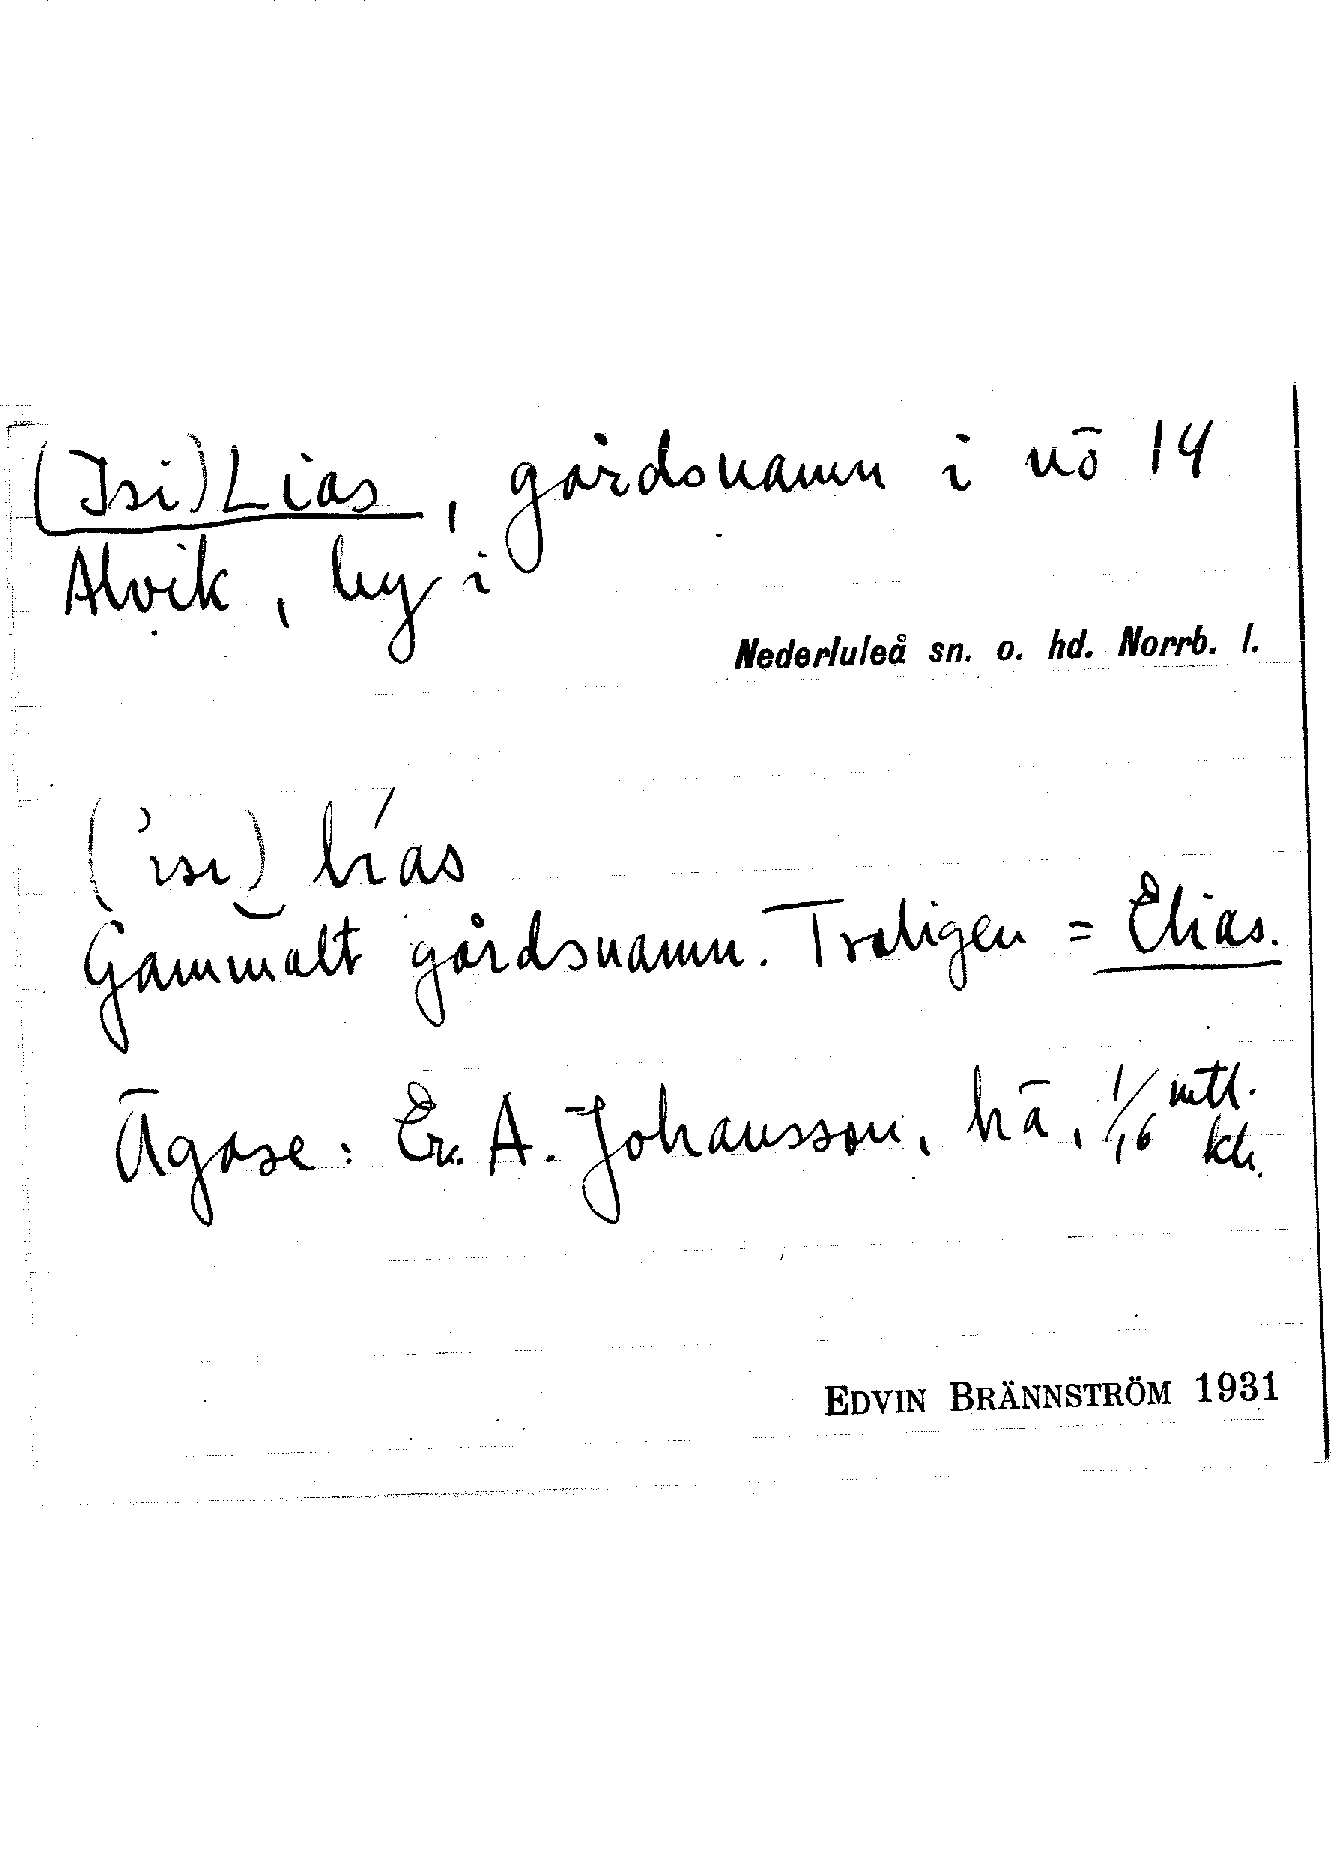 (Isi)Lias, gårdsnamn i nö 14
Alvik, by i
Nederluleå sn. o. hd. Norrb. l.
('ısı) lı́as
Gammalt gårdsnamn. Troligen = Elias.
Ägare: Er. A. Johansson, hä, 1/16 mtl. kr.
EDVIN BRÄNNSTRÖM 1931